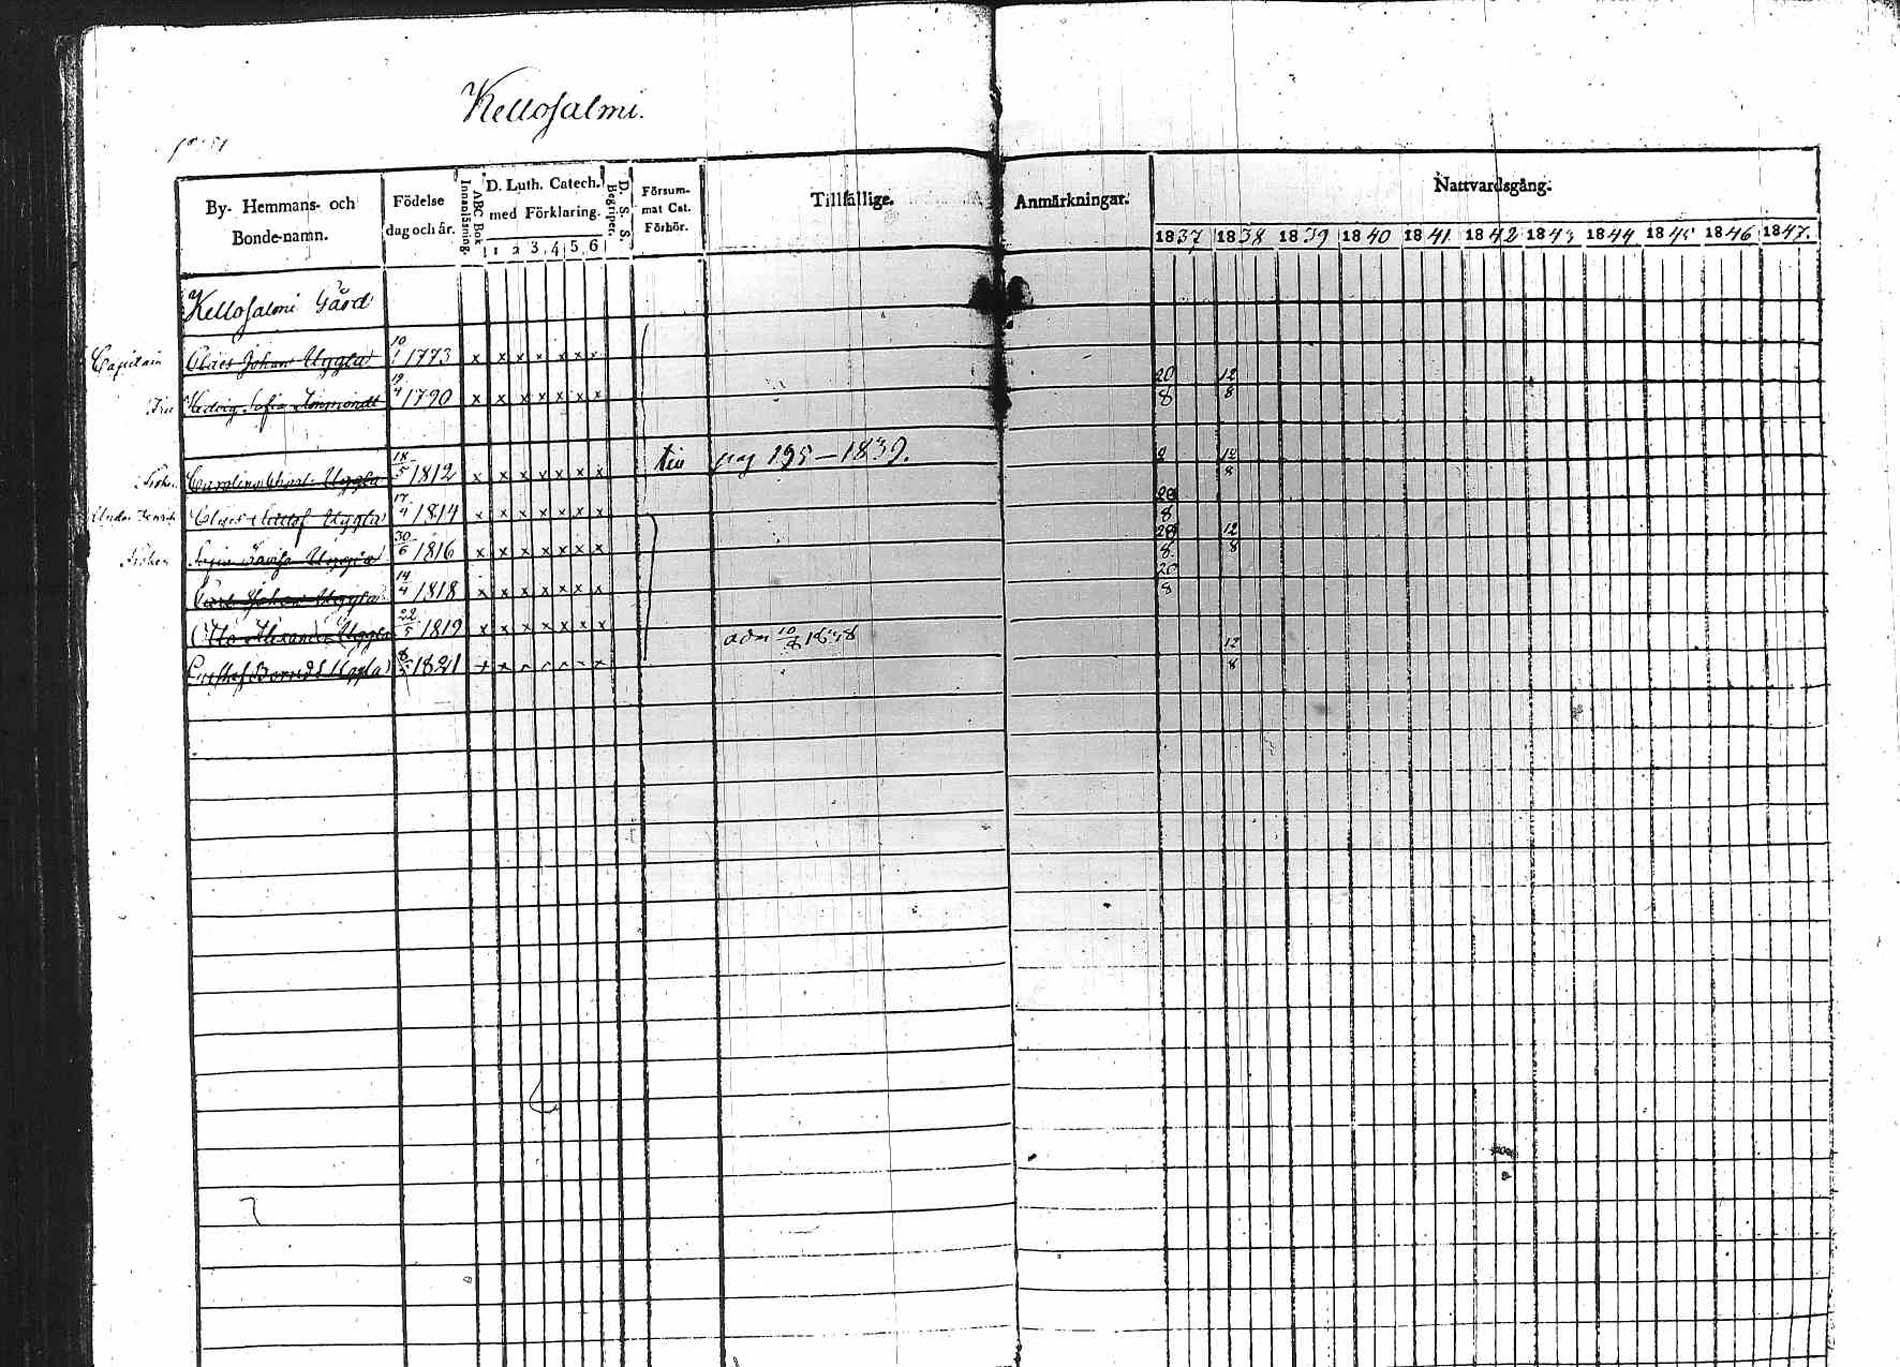 Kellosalmi.
By- Hemmans- och Bonde-namn.
Födelse dag och år.
Innanläsning.
ABC Bok
D. Luth. Catech. med Förklaring.
1 2 3 4 5 6
D. S. S. Begriper.
Försum- mat Cat. Förhör.
Tillfällige.
Anmärkningar.
Nattvardsgång.
1837 1838 1839 1840 1841 1842 1843 1844 1845 1846 1847.
Kellosalmi Gård
Capitain Claes Johan Uggla 10/1 1773 x x x x x x x
Fru Hedvig Sofia 19/4 1790 x x x x x x x 20/8 12/8
Carolina Charl. Uggla 18/5 1812 x x x x x x x till pag 195 – 1839. 12/8
Claes Uggla 17/4 1814 x x x x x x x 20/8
Fröken Uggla 30/6 1816 x x x x x x x 20/8 12/8
Carl Johan Uggla 14/4 1818 x x x x x x x 20/8
Otto Alexander Uggla 22/5 1819 x x x x x x x
Gustaf Berndt Uggla 1821 adm 10/8 1838 12/8